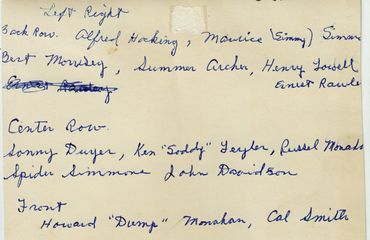 Left Right
Back Row. Alfred Hocking, Maurice (Simmy) Simm
Bert Morrisey, Summer Archer, Henry Lowell
Ernest Rawle
Center Row.
Sonny Dwyer, Ken "Soddy" Teyler, Russel Monaha
Spider Simmons John Davidson
Front
Howard "Dump" Monahan, Cal Smith